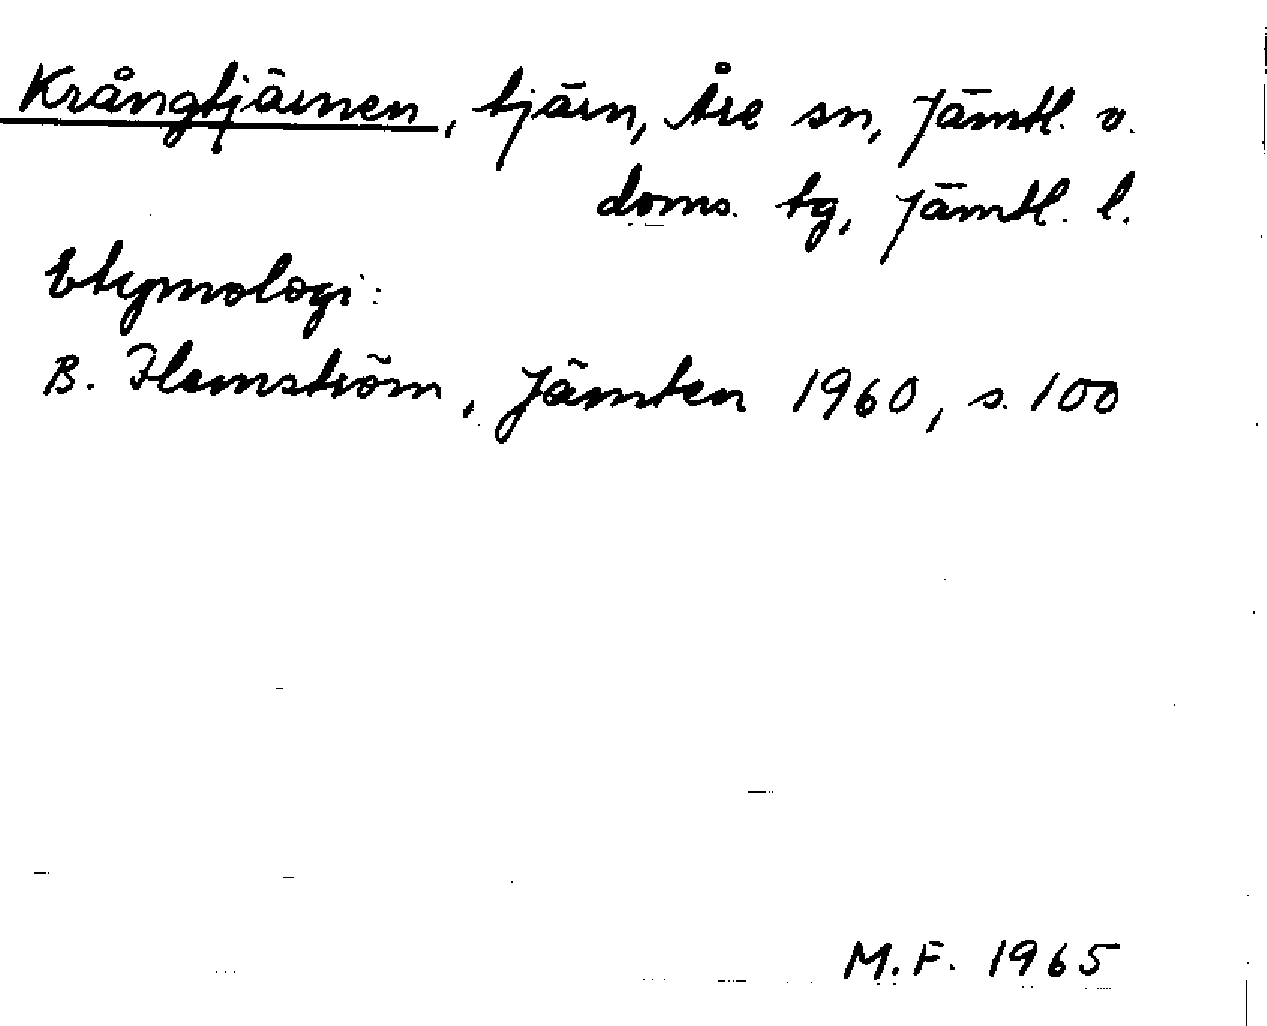 Krångtjärnen, tjärn, Åre sn, Jämtl. v.
doms. tg, Jämtl. l.
Etymologi:
B. Flemström, Jämten 1960, s. 100
M.F. 1965